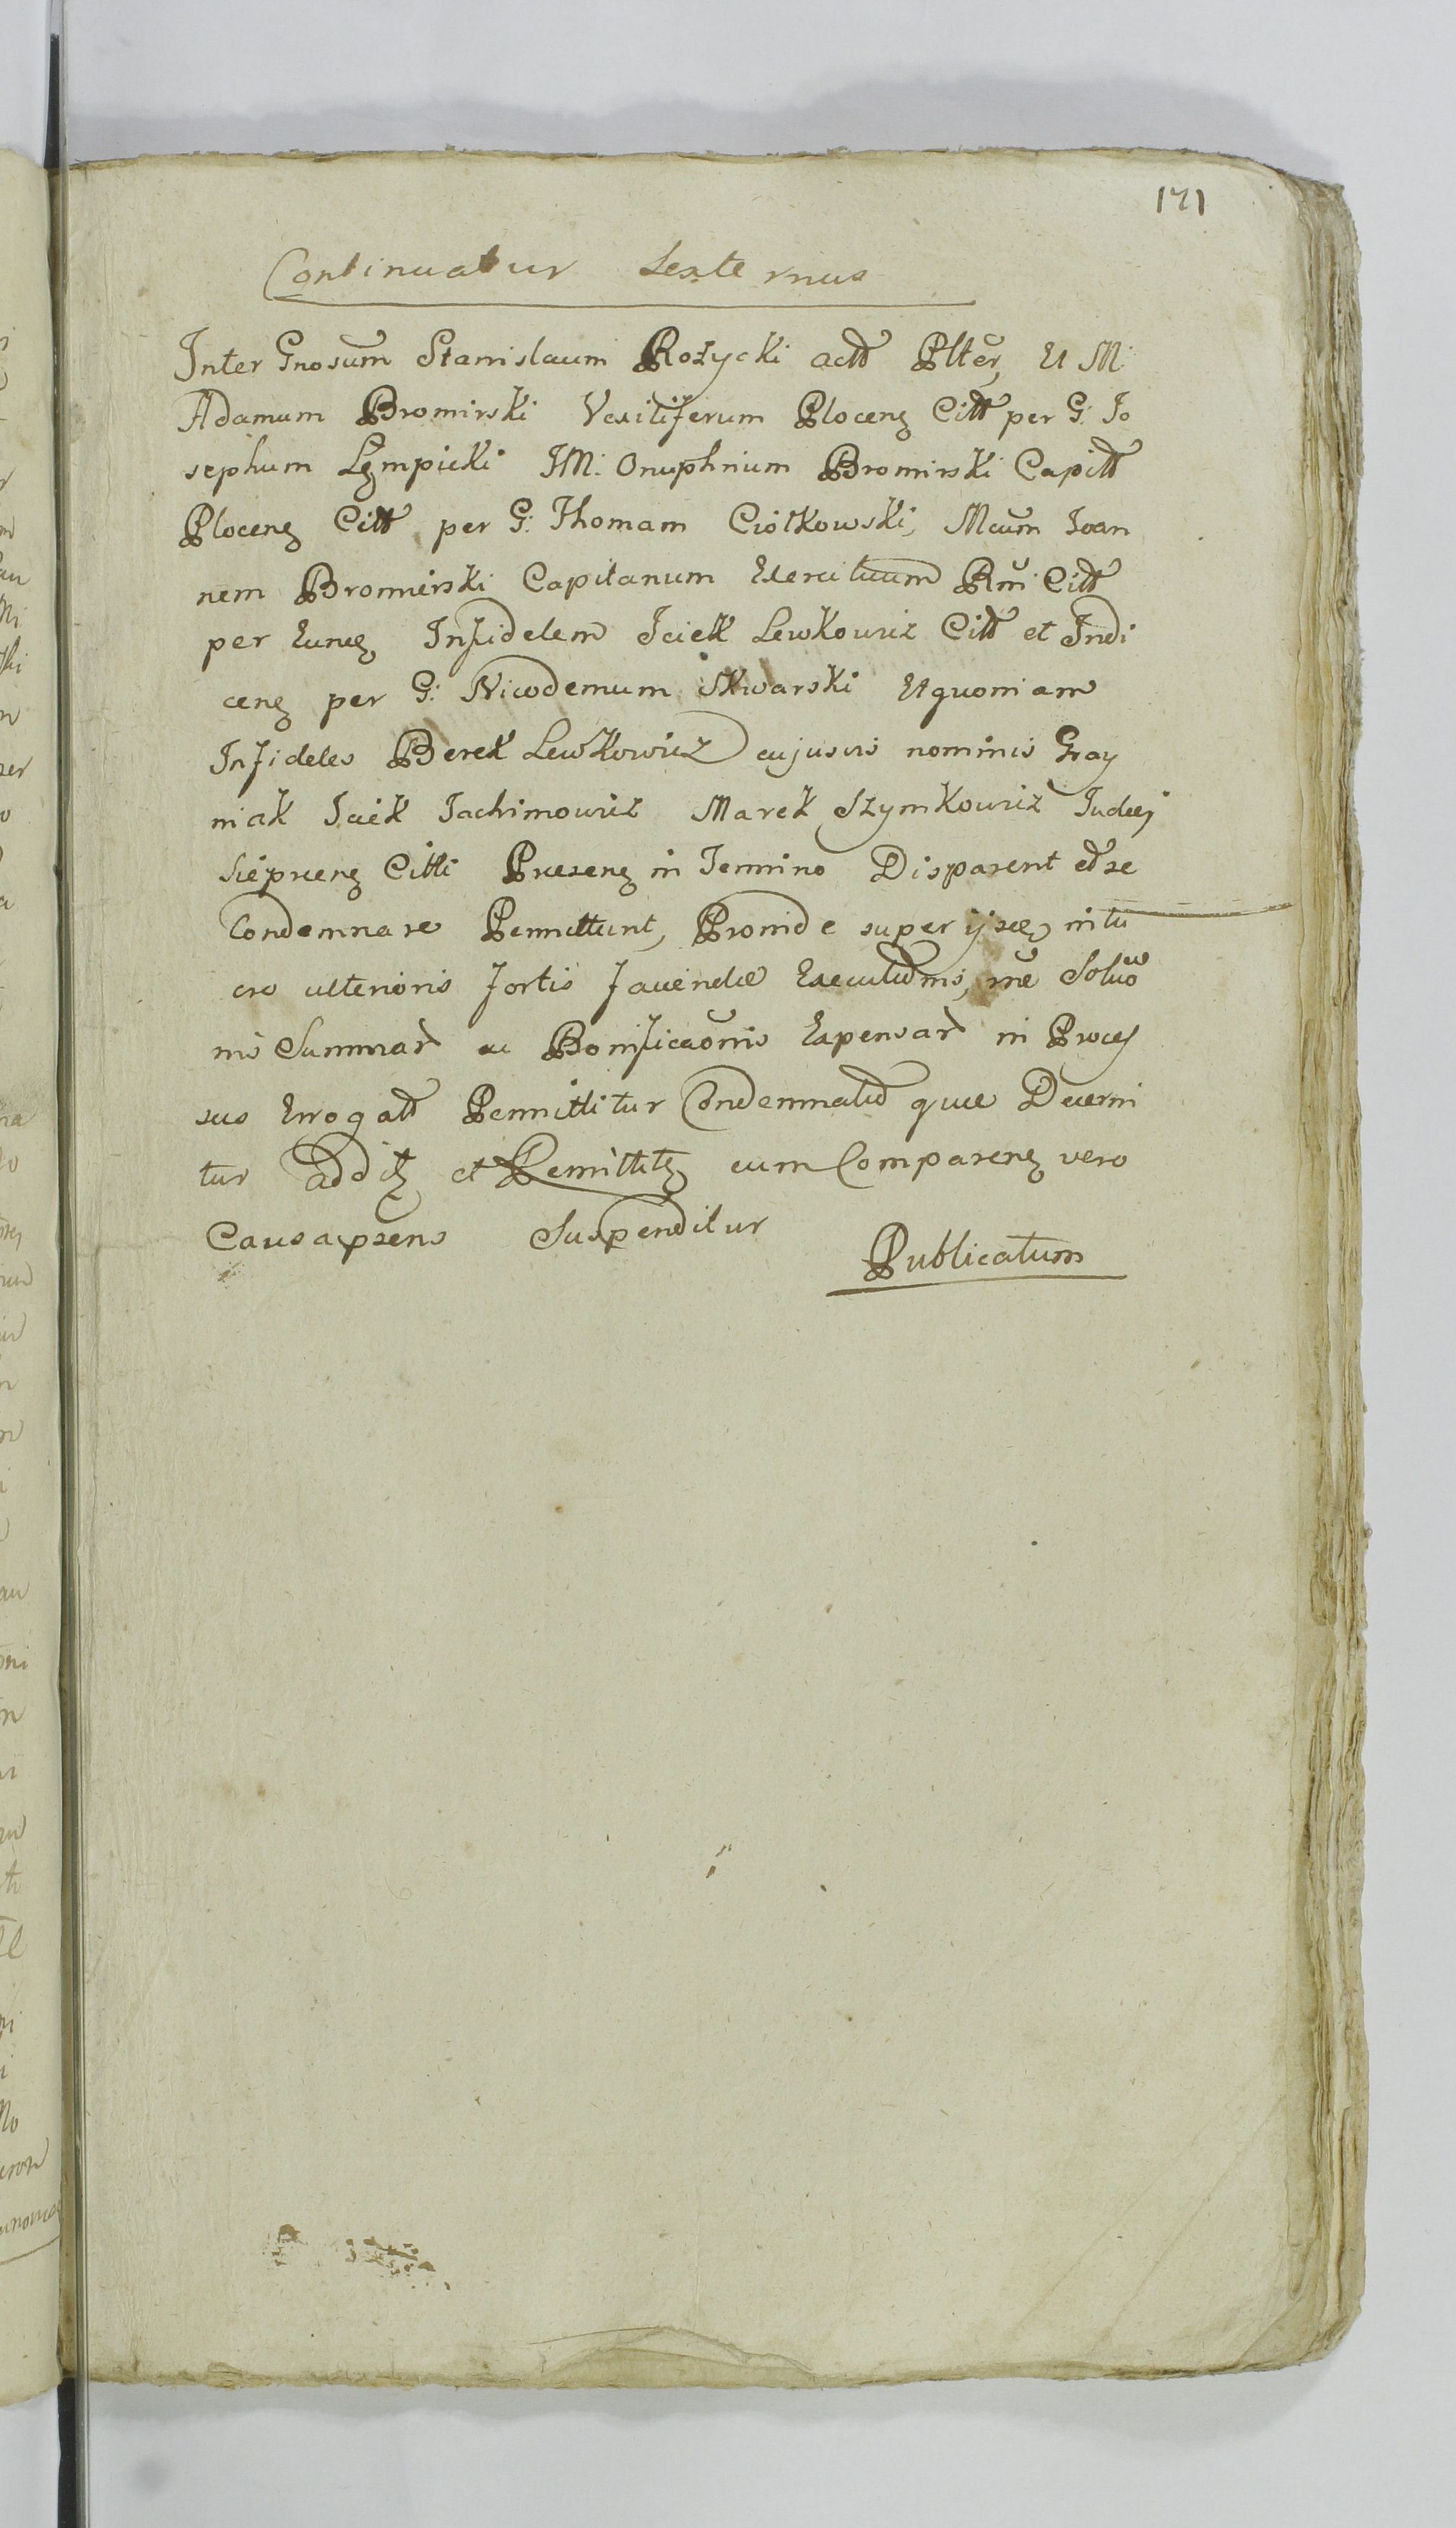 171
Continuatur Sexternus
Inter Gnosum Stanislaum Rozycki actt Plter, Et M:
Adamum Bromirski Vexiliferum Plocenz Citt per G: Jo
sephum Lęmpicki JM: Onuphrium Bromirski Capitt
Plocenz Citt per G: Thomam Ciołkowski, Mcum Joan
nem Bromirski Capitanum Exercituum Rni Citt
per Eundz Infidelem Iciek Lewkowicz Citt et Indi
cenz per G: Nicodemum Skwarski Et quoniam
Infideles Berek Lewkowicz cujusvis nominis Gray
niak Iciek Jachimowicz Marek Szymkowicz Judæi
Siepruenz Citti Præsenz in Termino Disparent et se
Condemnare Permittunt, Proinde super ijsdz in lu
cro ulterioris fortis faciendæ Executionis, rne Soluo
nis Summar ac Bonificaonis Expensar in Proces
sus Errogatt Permittitur Condemnatio quæ Decerni
tur addiz et Remittitz cum Comparenz vero
Causa psens Suspenditur
Publicatum